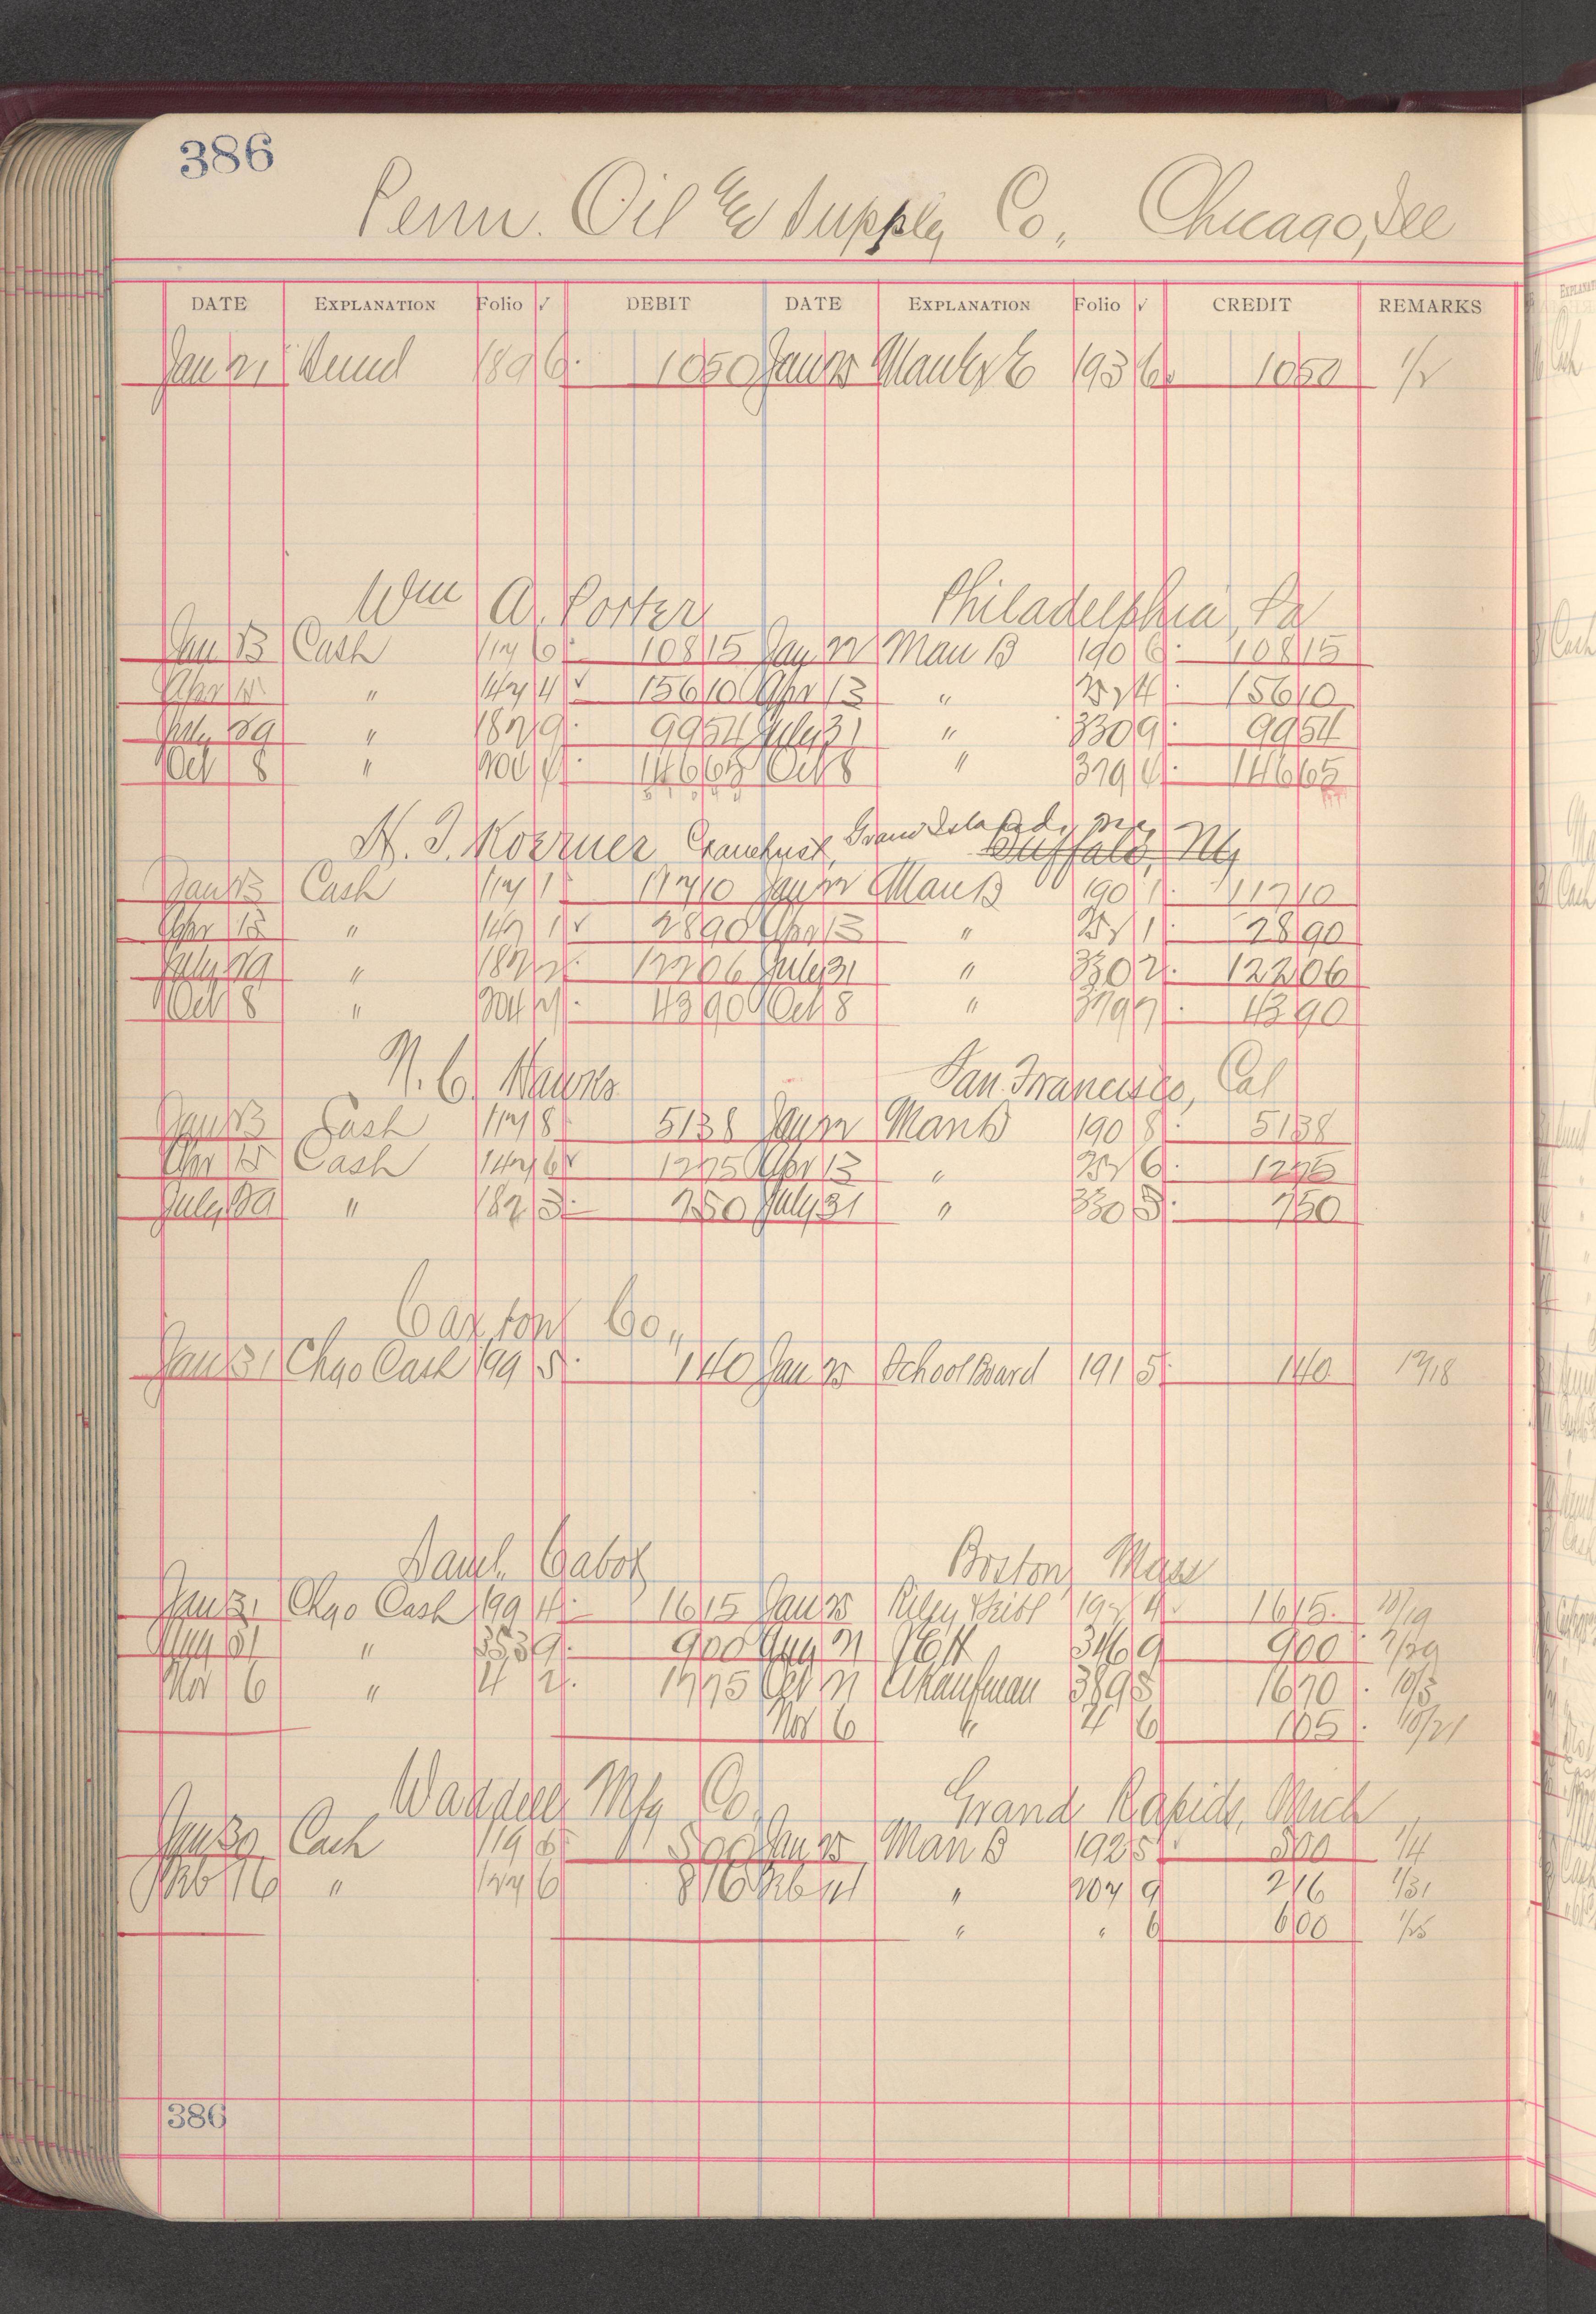 386
Penn. Oil & Supply Co., Chicago, Ill
DATE EXPLANATION Folio √ DEBIT DATE EXPLANATION Folio √ CREDIT REMARKS
Jan 1050 Jan 25 193 6 1050 1/2
Wm A. Porter Philadelphia, Pa
Jan 13 Cash 117 6 108 15 Jan 22 Man B 190 6 108 15
Apr 15 " 147 4 √ 156 10 Apr 13 " 257 4 156 10
July 29 " 182 9 99 54 July 31 " 330 9 99 54
Oct 8 " 146 65 Oct 8 " 379 146 65
Koerner Grand Island, Buffalo, NY
Jan 13 Cash 117 1 117 10 Jan 22 Man B 190 1 117 10
Apr 15 " 147 1 √ 28 90 Apr 13 " 257 1 28 90
July 29 " 182 2 122 06 July 31 " 330 2 122 06
Oct 8 " 204 43 90 Oct 8 " 379 7 43 90
San Francisco, Cal
Jan 13 Cash 117 8 51 38 Jan 22 Man B 190 8 51 38
Apr 15 Cash 147 6 √ 12 75 Apr 13 " 257 6 12 75
July 29 " 182 3 7 50 July 31 " 330 3 7 50
Caxton Co.,
Jan 31 Chgo Cash 199 5 1 40 Jan 25 School Board 191 5 1 40 12/18
Cabot Boston, Mass
Jan 31 Chgo Cash 199 4 16 15 Jan 25 4 16 15 12/19
Aug 31 " 353 9 9 00 Aug 21 346 9 9 00 7/29
Nov 6 " 4 2 17 75 Oct 21 Kaufman 389 5 16 70 10/3
Nov 6 " 4 6 1 05 10/21
Mfg Co. Grand Rapids, Mich
Jan 30 Cash 119 5 00 Jan 25 Man B 192 5 5 00 1/4
Feb 16 " 6 8 16 Feb 11 " 207 9 2 16 1/31
" " 6 6 00 1/25
386